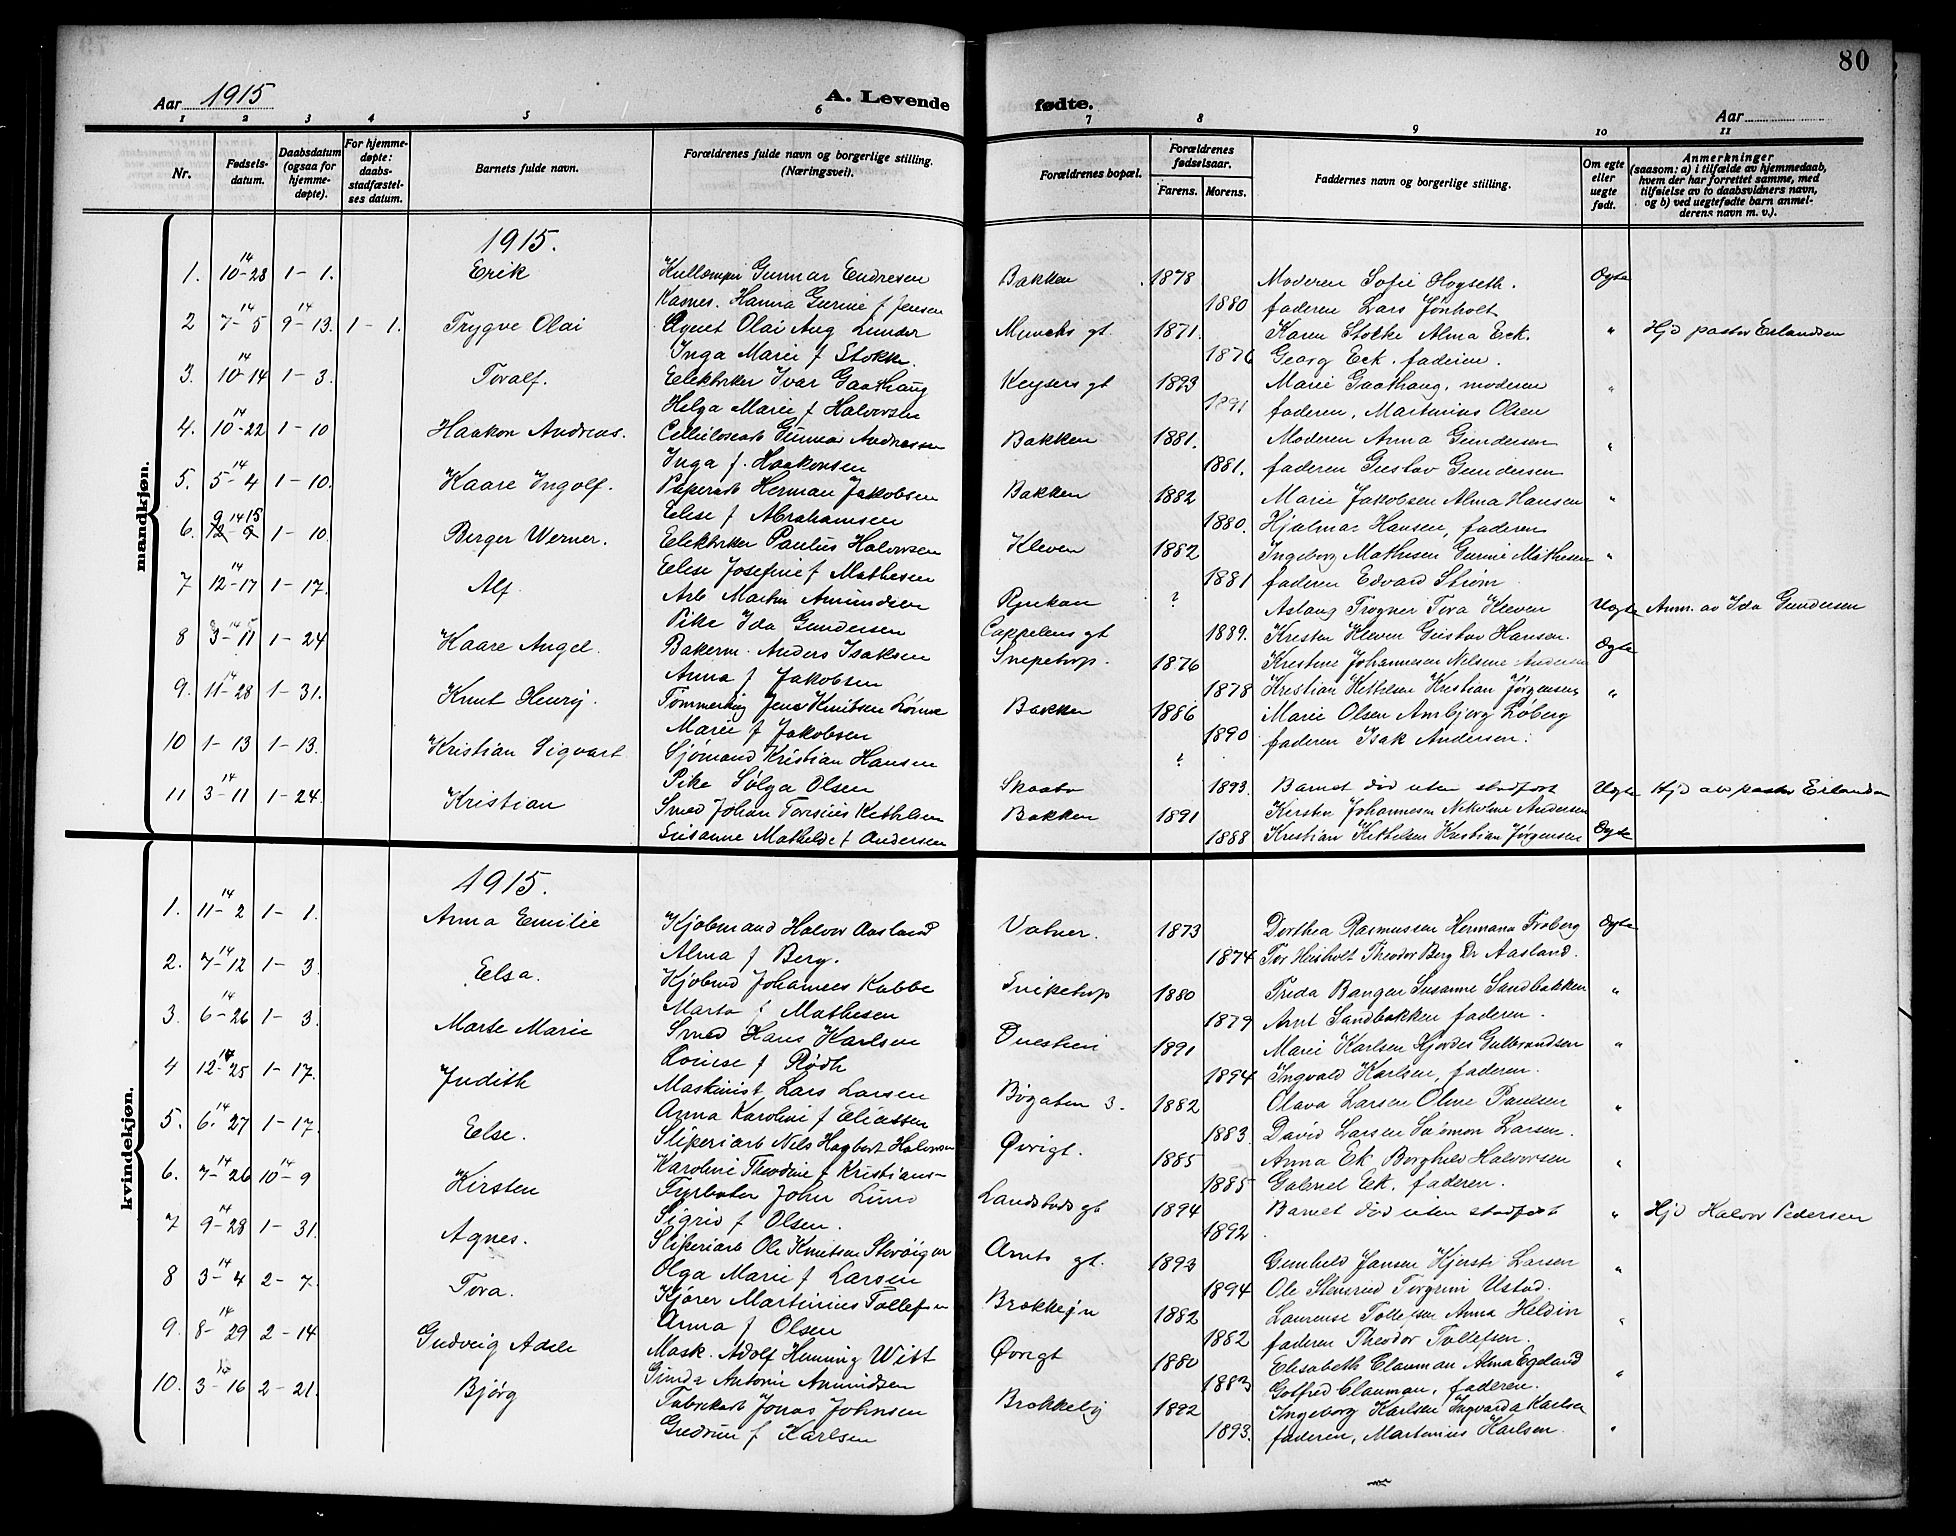 80
Aar 1915
A. Levende
fødte.
Aar
1 2 3 4 5 6 7 8 9 10 11
Nr.
Fødsels-
datum.
Daabsdatum
(ogsaa for
hjemme-
døpte).
For hjemme-
døpte:
daabs-
stadfæstel-
ses datum.
Barnets fulde navn.
Forældrenes fulde navn og borgerlige stilling.
(Næringsvei).
Forældrenes bopæl.
Forældrenes
fødselsaar.
Farens. Morens.
Faddernes navn og borgerlige stilling.
Om egte
eller
uegte
født.
Anmerkninger
(saasom: a) i tilfælde av hjemmedaab,
hvem der har forrettet samme, med
tilføielse av to daabsvidners navn,
og b) ved uegtefødte barn anmel-
derens navn m. v.).
mandkjøn.
1915.
1. 10-14 28 1-1. Erik Gunnar Endresen Bakken 1878 Moderen Sofie Hogseth. Ogte
Hanna Gurine f Jensen 1880 faderen Lars Jønholt
2 7-14 5 9-14 13. 1-1. Trygve Olai Agent Olai Aug Lunder Muncks gt 1871. Karen Stokke Alma Eek. " Hjd pastor Erlandsen
Inga Marie f Stokke. 1876 Georg Eek. faderen.
3. 10-14 14 1-3. Toralf. Elektriker Ivar Gaathaug Keysers gt 1893 Marie Gaathaug, moderen "
Helga Marie f Halvorsen 1891 faderen, Martinius Olsen
4. 10-14 22 1-10 Haakon Andreas. Cellulosearb Gunnar Andreassen Bakken 1881. Moderen Anna Gundersen "
Inga f. Haakonsen 1881. faderen Gustav Gundersen
5. 5-14 4 1-10. Kaare Ingolf. Papirarb Herman Jakobsen Bakken 1882 Marie Jakobsen Alma Hansen "
Elise f Abrahamsen 1880. Hjalmar Hansen, faderen
6. 9-14 15 1-10. Berger Werner. Elektriker Paulus Halvorsen Kleven 1882 Ingeborg Mathisen Gurine Mathesen "
Elise Josefine f Mathesen 1881 faderen Edvard Strøm
7 12-14 17 1-17. Alf. Arb Martin Amundsen Rjukan ? Aslaug Trogner Tora Kleven Uegte Anm. av Ida Gundersen
Pike Ida Gundersen Cappelens gt 1889. Kristen Kleven Gustav Hansen.
8 3-14 11 1-24 Kaare Angel. Bakerm. Anders Isaksen Snipetorp. 1876 Kristine Johannesen Nelsine Andersen Ogte
Anna f Jakobsen 1878 Kristian Kethelsen Kristian Jørgensen
9. 11-14 28 1-31. Knut Henrij. Jens Knutsen Bakken 1886 Marie Olsen Ambjorg Løberg "
Marie f Jakobsen 1890 faderen Isak Andersen.
10 1-13 1-13. Kristian Sigvart Sjømand Kristian Hansen ?
Pike Solga Olsen Skaabo 1893. Barnet død uten stadfæst Uegte Hjd av pastor Erlandsen
11 3-14 11 1-24. Kristian Smed Johan Torsius Kethelsen Bakken 1891 Kirsten Johannesen Nikoline Andersen
Susanne Mathilde f Andersen 1888 Kristian Kethelsen Kristian Jørgensen Ogte
kvindekjøn.
1915.
1. 11-14 2 1-1. Anna Emilie Kjøbmand Halvor Aasland Vabner. 1873 Dorthea Rasmussen Hermana Froberg Ogte
Alma f Berg. 1874 Tor Hersholt Theodor Berg Dr Aasland.
2. 7-14 12 1-3. Elsa. Kjøbmd Johannes Kabbe Snipetorp 1880 Frida Bangen Susanne Sandbakken "
Marta f Mathesen 1879 Arnt Sandbakken faderen.
3. 6-14 26 1-3. Marte Marie Smed Hans Karlsen Duestien 1891 Marie Karlsen Hjordes Gulbrandsen "
Louise f Rødh 1894 Ingvald Karlsen, faderen.
4 12-14 25 1-17. Judith Maskinist Lars Larsen Bøgaten 3. 1882 Olava Larsen Oline Paulsen "
Anna Karoline f Eliassen 1883. David Larsen Salomon Larsen.
5. 6-14 27 1-17. Else. Sliperiarb Nils Hagbert Halvorsen Øvrigt. 1885 Anna Ek Borghild Halvorsen "
Karoline Theodine f Kristians- 1885 Gabriel Eek. faderen.
6. 7-14 26 10-14 9 Kirsten Fyrbøter John Lund Landstads gt 1894 Barnet død uten stadfæst " Hjd Halvor Pedersen
Sigrid f Olsen. 1892
7 9-14 28 1-31. Agnes. Sliperiarb Ole Knutsen Amts gt. 1893 Gunhild Jansen Kjersti Larsen "
Olga Marie f Larsen 1894 Ole Stensrud Torgrim Ustad.
8 3-14 4 2-7. Tova. Kjører Martinius Tollefsen 1882 Laurense Tollefsen Anna Heldin "
Anna f Olsen 1882 faderen Theodor Tollefsen.
9. 8-14 29 2-14 Gudveig Adele Mask. Adolf Henning Witt Øvrigt 1880 Elisabeth Clauman Alma Egeland "
Antonie Amundsen 1883 Gotfred Clauman, faderen.
10. 3-16 2-21. Bjørg Fabrikarb Jonas Johnsen 1892 Ingeborg Karlsen Ingvarda Karlsen
Gudrun f Karlsen 1893. faderen, Martinius Karlsen. "